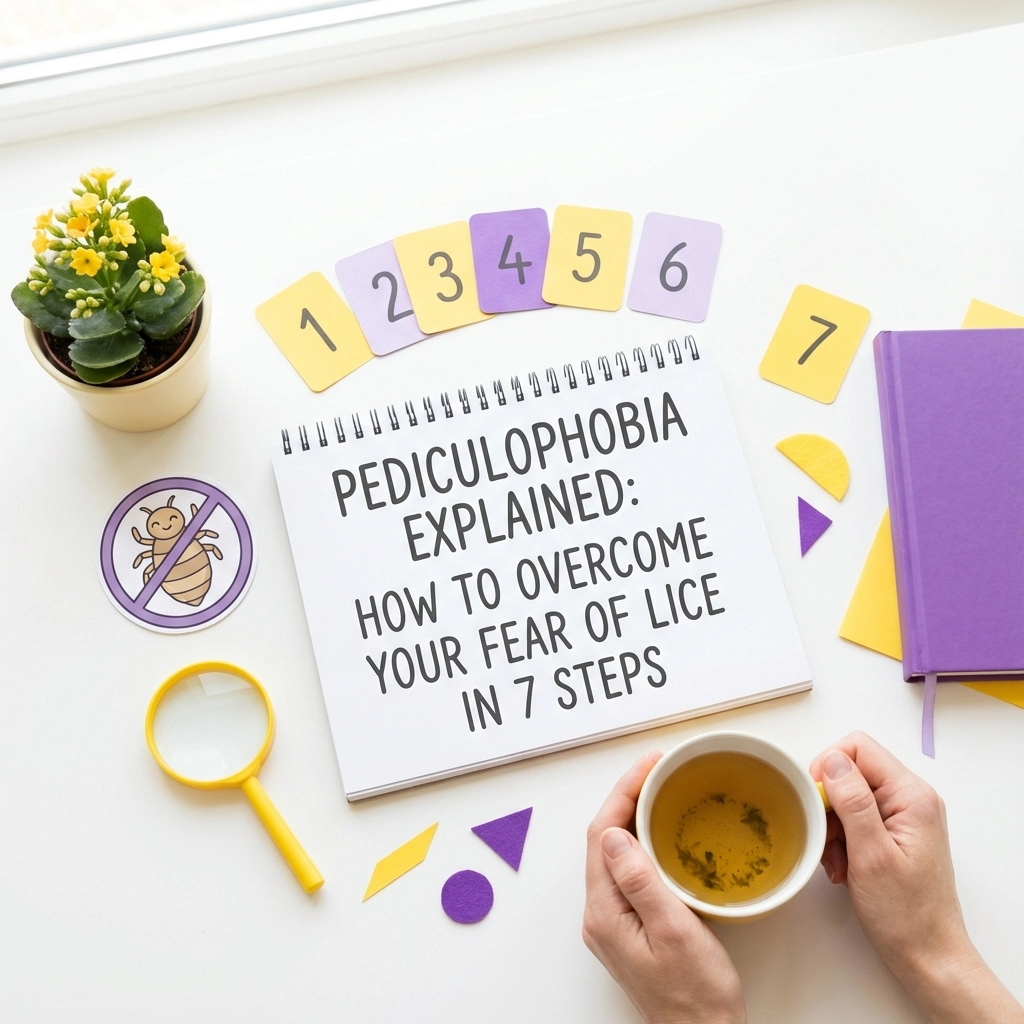 1
2
3
4
5
6
7
PEDICULOPHOBIA
EXPLAINED:
HOW TO OVERCOME
YOUR FEAR OF LICE
IN 7 STEPS